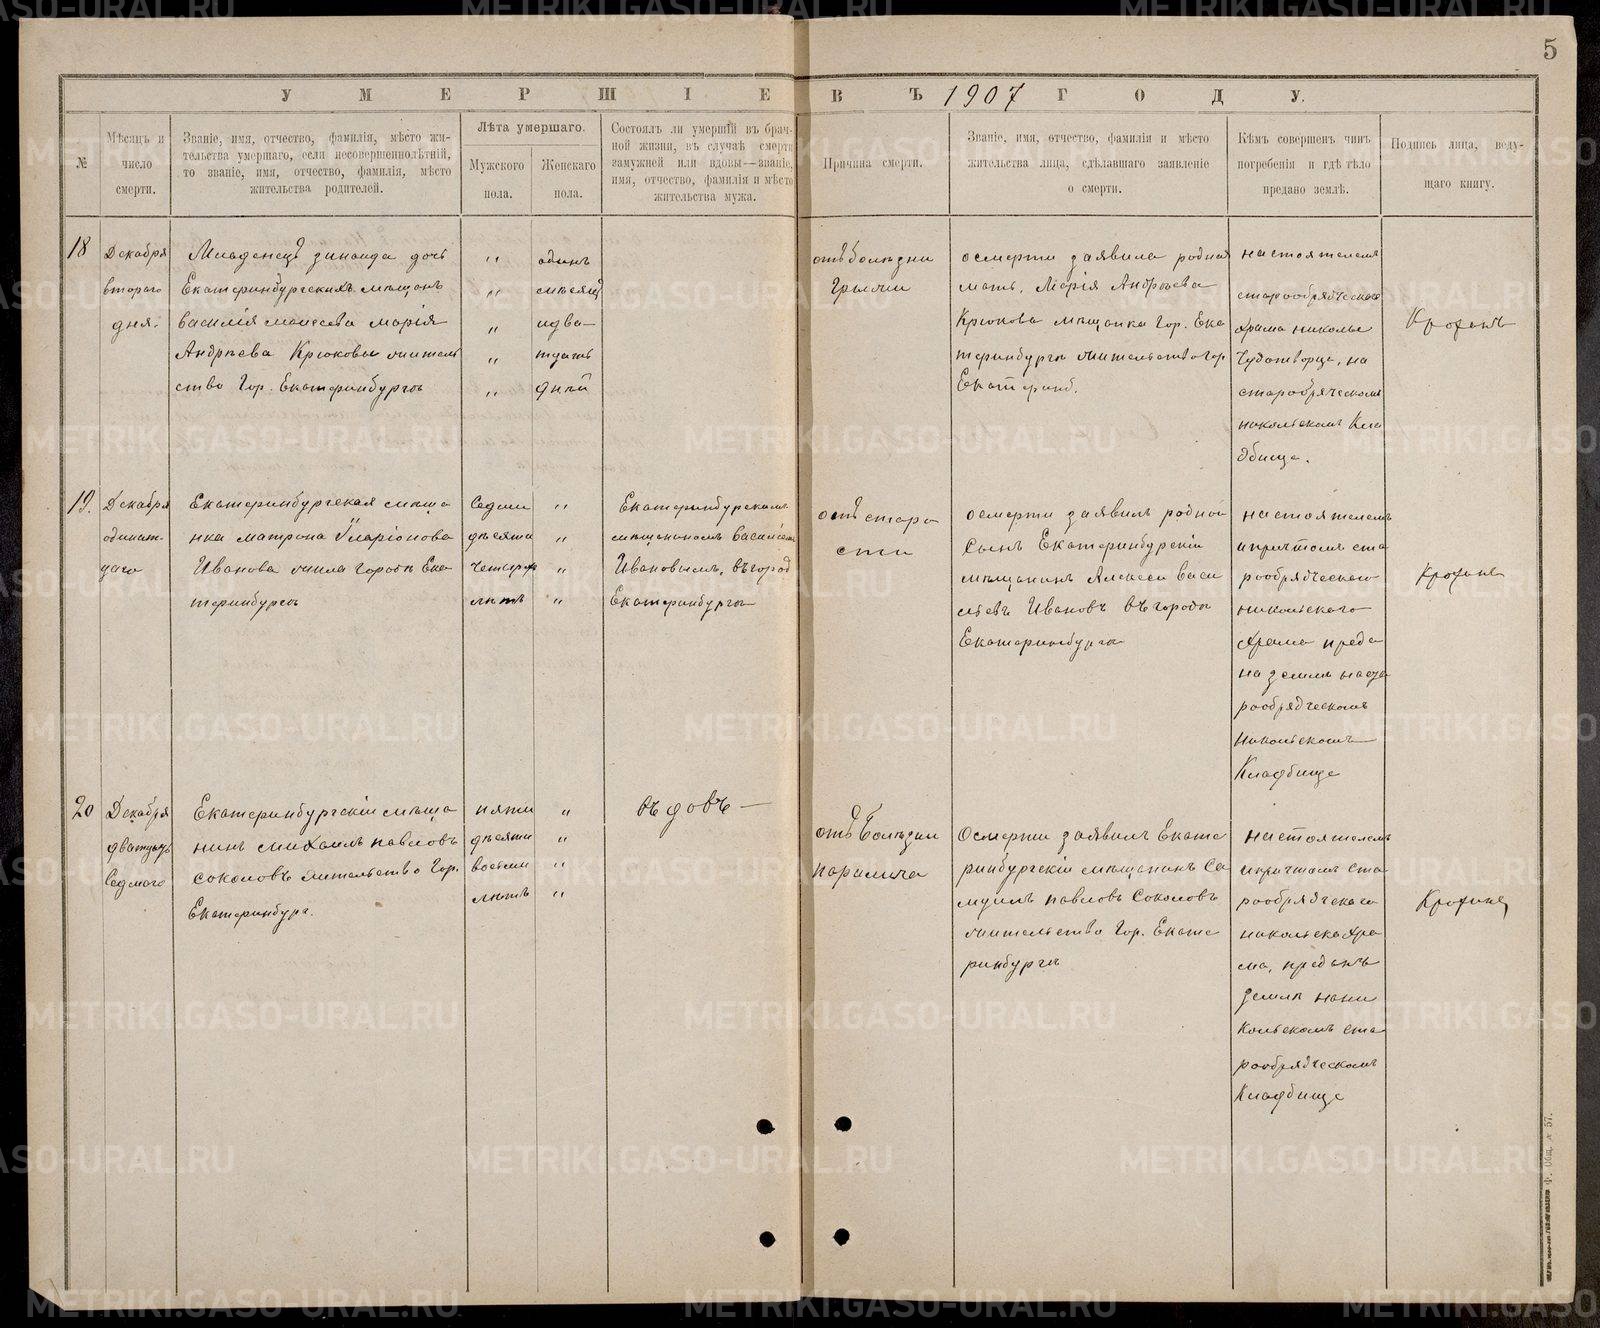 5
УМЕРШІЕ ВЪ 1907 ГОДУ.
№
Мѣсяцъ и
число
смерти.
Званіе, имя, отчество, фамилія, мѣсто жи-
тельства умершаго, если несовершеннолѣтній,
то званіе, имя, отчество, фамилія, мѣсто
жительства родителей.
Лѣта умершаго.
Мужского
пола.
Женскаго
пола.
Состоялъ ли умершій въ брач-
ной жизни, въ случаѣ смерти
замужней или вдовы—званіе,
имя, отчество, фамилія и мѣсто
жительства мужа.
Причина смерти.
Званіе, имя, отчество, фамилія и мѣсто
жительства лица, сдѣлавшаго заявленіе
о смерти.
Кѣмъ совершенъ чинъ
погребенія и гдѣ тѣло
предано землѣ.
Подпись лица, веду-
щаго книгу.
18
Декабря
втораго
дня.
Младенецъ зинаида дочь
Екатеринбургскихъ мѣщанъ
василія моисеева марія
Андрѣева Крюковы житель
ство Гор. Екатеринбургъ
" " " " "
одинъ
мѣсяцъ
идва—
тцать
дней
отъ болѣзни
Грыжи
осмерти заявила родная
мать, Марія Андрѣева
Крюкова мѣщанка Гор. Ека
теринбурга жительство Гор
Екатеринб.
настоятелемъ
старообрядческаго
Храма николы
Чудотворца, на
старобряческомъ
никольскомъ Кла
дбище.
19.
Декабря
одинат-
цаго
Екатеринбургская мѣща
нка матрона Иларіонова
Иванова жила Городъ Ека
теринбургъ
Седми
дѣсяти
четырѣ
лѣтъ
" " " "
Екатеринбурскимъ
мѣщаниномъ василиемъ
Ивановымъ, въ город
Екатеринбургъ
отъ старо
сти
осмерти заявилъ родной
Сынъ Екатеринбурскій
мѣщанинъ Алексеи васи
льевъ Ивановъ въ городѣ
Екатеринбургъ
настоятелемъ
ипричтомъ ста
рообрядческаго
никольскаго
Храма преда
на землѣ наста
рообрядческомъ
Никольскомъ
Кладбище
20
Декабря
дватцать
Седмого
Екатеринбургскій мѣща
нинъ михаилъ павловъ
соколовъ жительство Гор.
Екатеринбург.
пяти
дѣсяти
восѣми
лѣтъ
" " " "
въ довъ—
отъ болѣзни
паралича
Осмерти заявилъ Екате
ринбургскій мѣщанинъ Са
муилъ павловъ Соколовъ
жительство Гор. Екате
ринбургъ
настоятелемъ
ипричтомъ ста
рообрядческаго
никольска хра
ма, преданъ
землѣ нани
кольскомъ ста
рообрядческомъ
Кладбище
METRIKI.GASO-URAL.RU